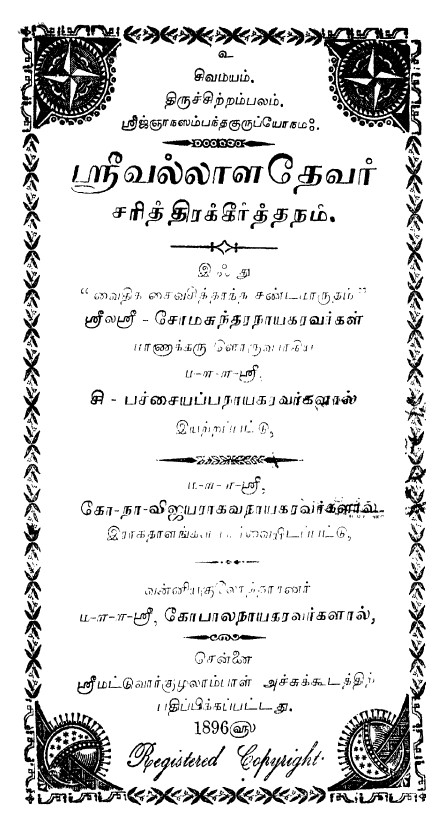 உ
சிவமயம்.
திருச்சிற்றம்பலம்.
ஸ்ரீஜ்ஞாநஸம்பந்தகுருப்யோநம:.
ஸ்ரீவல்லாளதேவர்
சரித்திரக்கீர்த்தநம்.
இஃது
"வைதிக சைவசித்தாந்த சண்டமாருதம்"
ஸ்ரீலஸ்ரீ - சோமசுந்தரநாயகரவர்கள்
மாணாக்கருளொருவராகிய
ம-ள-ள-ஸ்ரீ,
சி - பச்சையப்பநாயகரவர்களால்
இயற்றப்பட்டு,
ம-ள-ள-ஸ்ரீ,
கோ-நா-விஜயராகவநாயகரவர்களால்
இராகதாளங்கள்
வன்னியகுலோத்தாரணர்
ம-ள-ள-ஸ்ரீ, கோபாலநாயகரவர்களால்,
சென்னை
ஸ்ரீமட்டுவார்குழலாம்பாள் அச்சுக்கூடத்திற்
பதிப்பிக்கப்பட்டது.
1896௵
Registered Copyright.